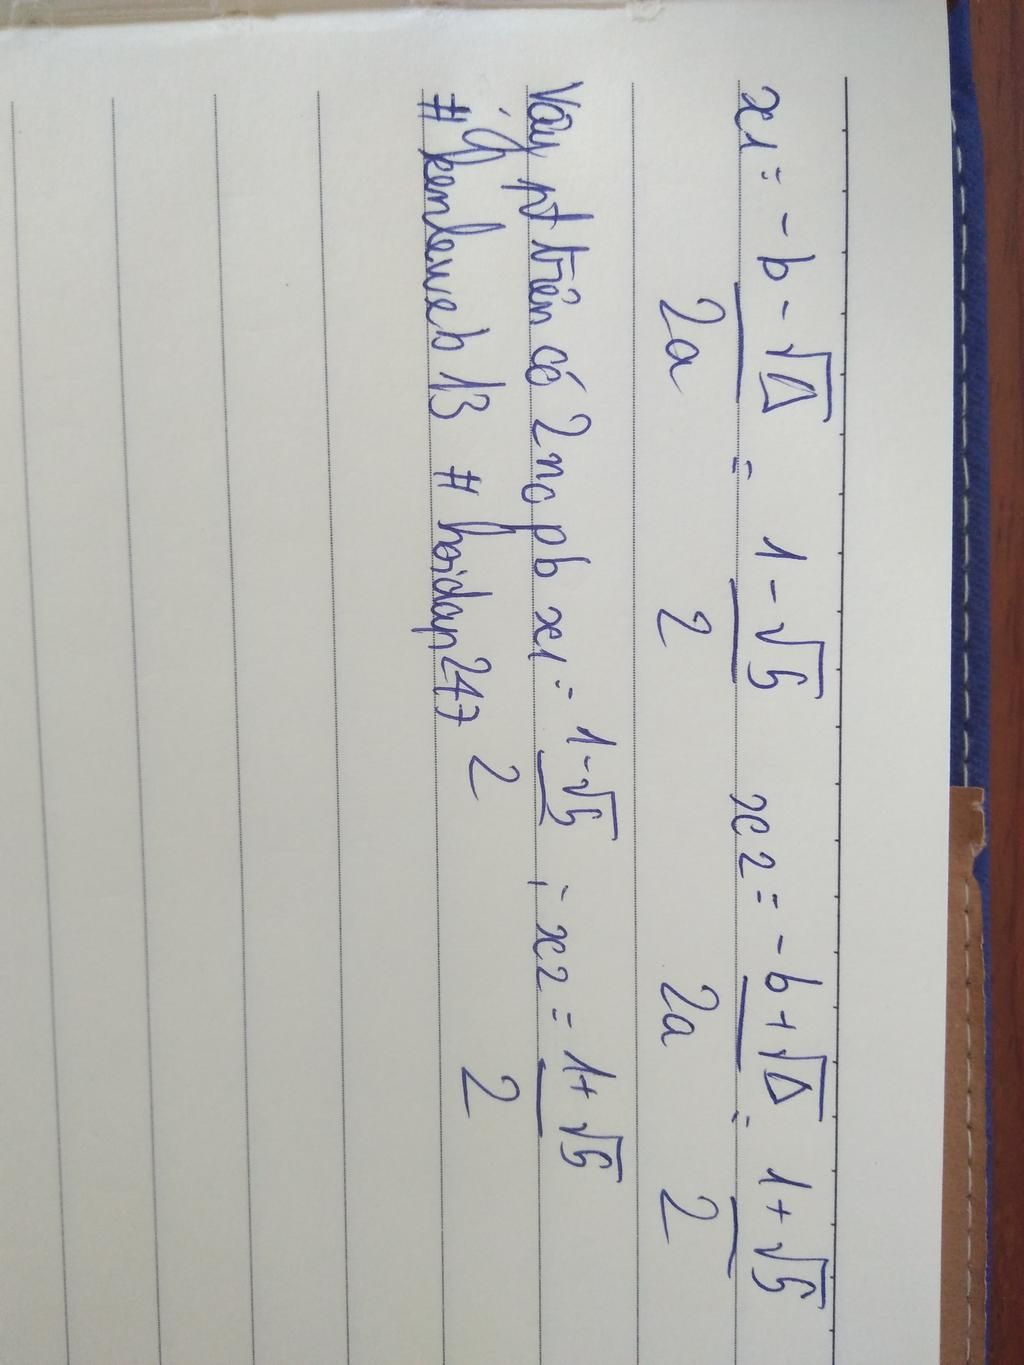 x1 = -b - √Δ / 2a = 1 - √5 / 2 x2 = -b + √Δ / 2a = 1 + √5 / 2
Vậy pt trên có 2 no pb x1 = 1 - √5 / 2 ; x2 = 1 + √5 / 2
# kenleweb13 # hoidap247